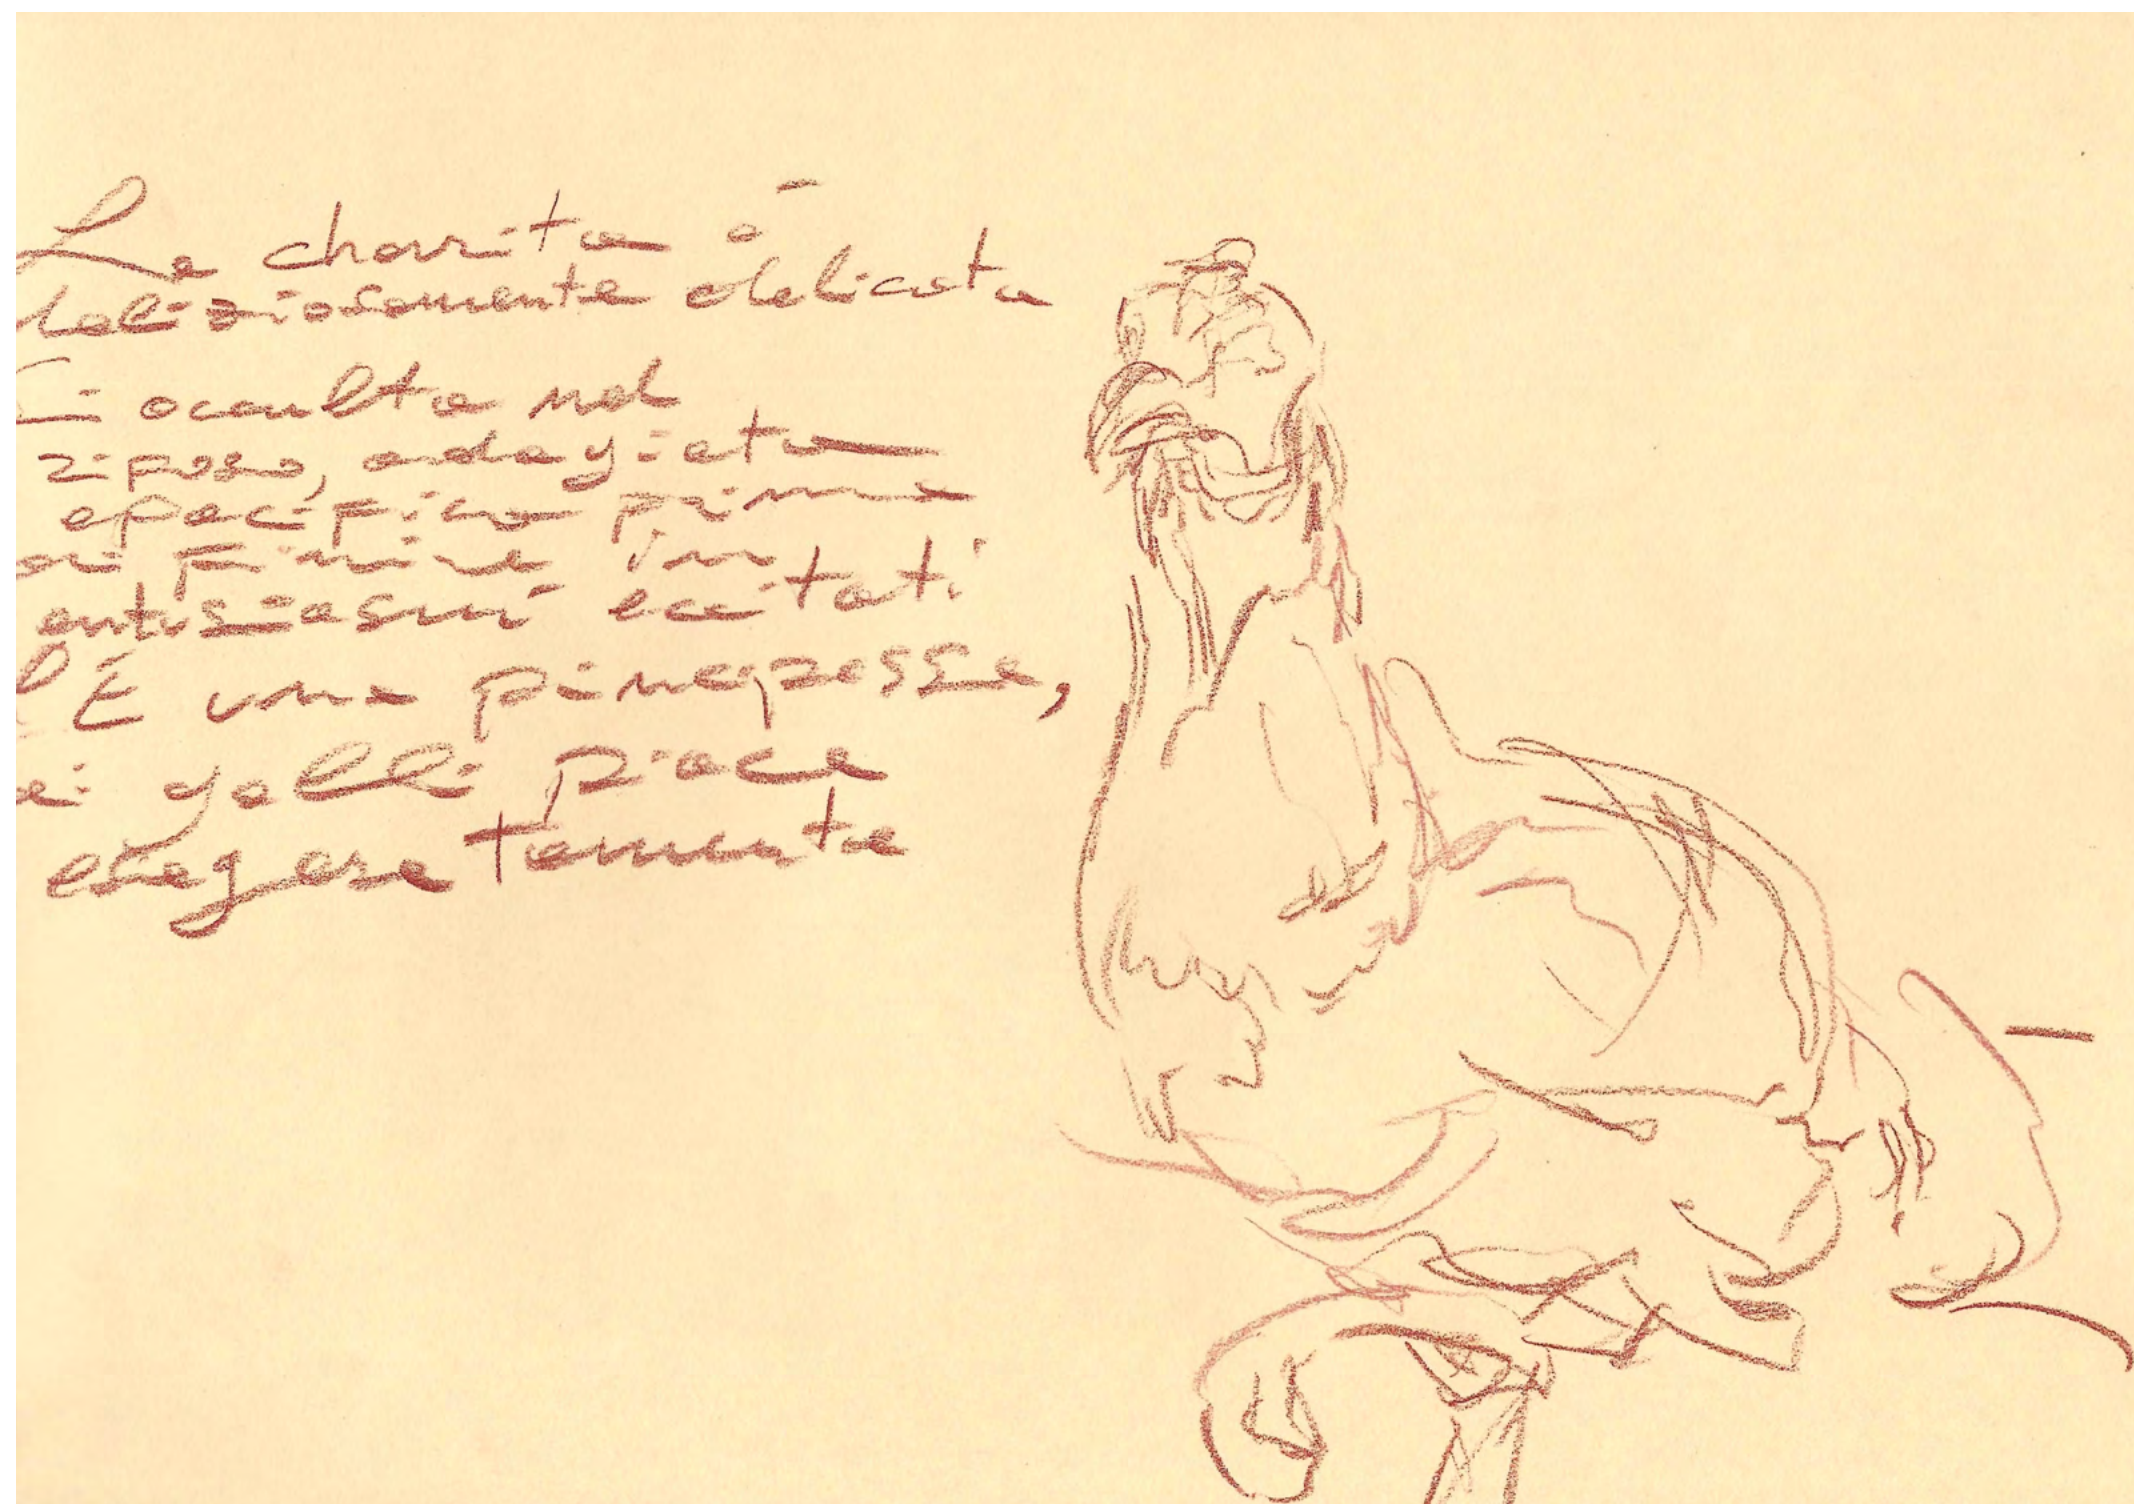 La charrita è
deliziosamente delicata
Si occulta nel
riposo, adagiata
e pacifica prima
di finire in
entusiasmi eccitati
È una principessa,
ai galli piace
esageratamente